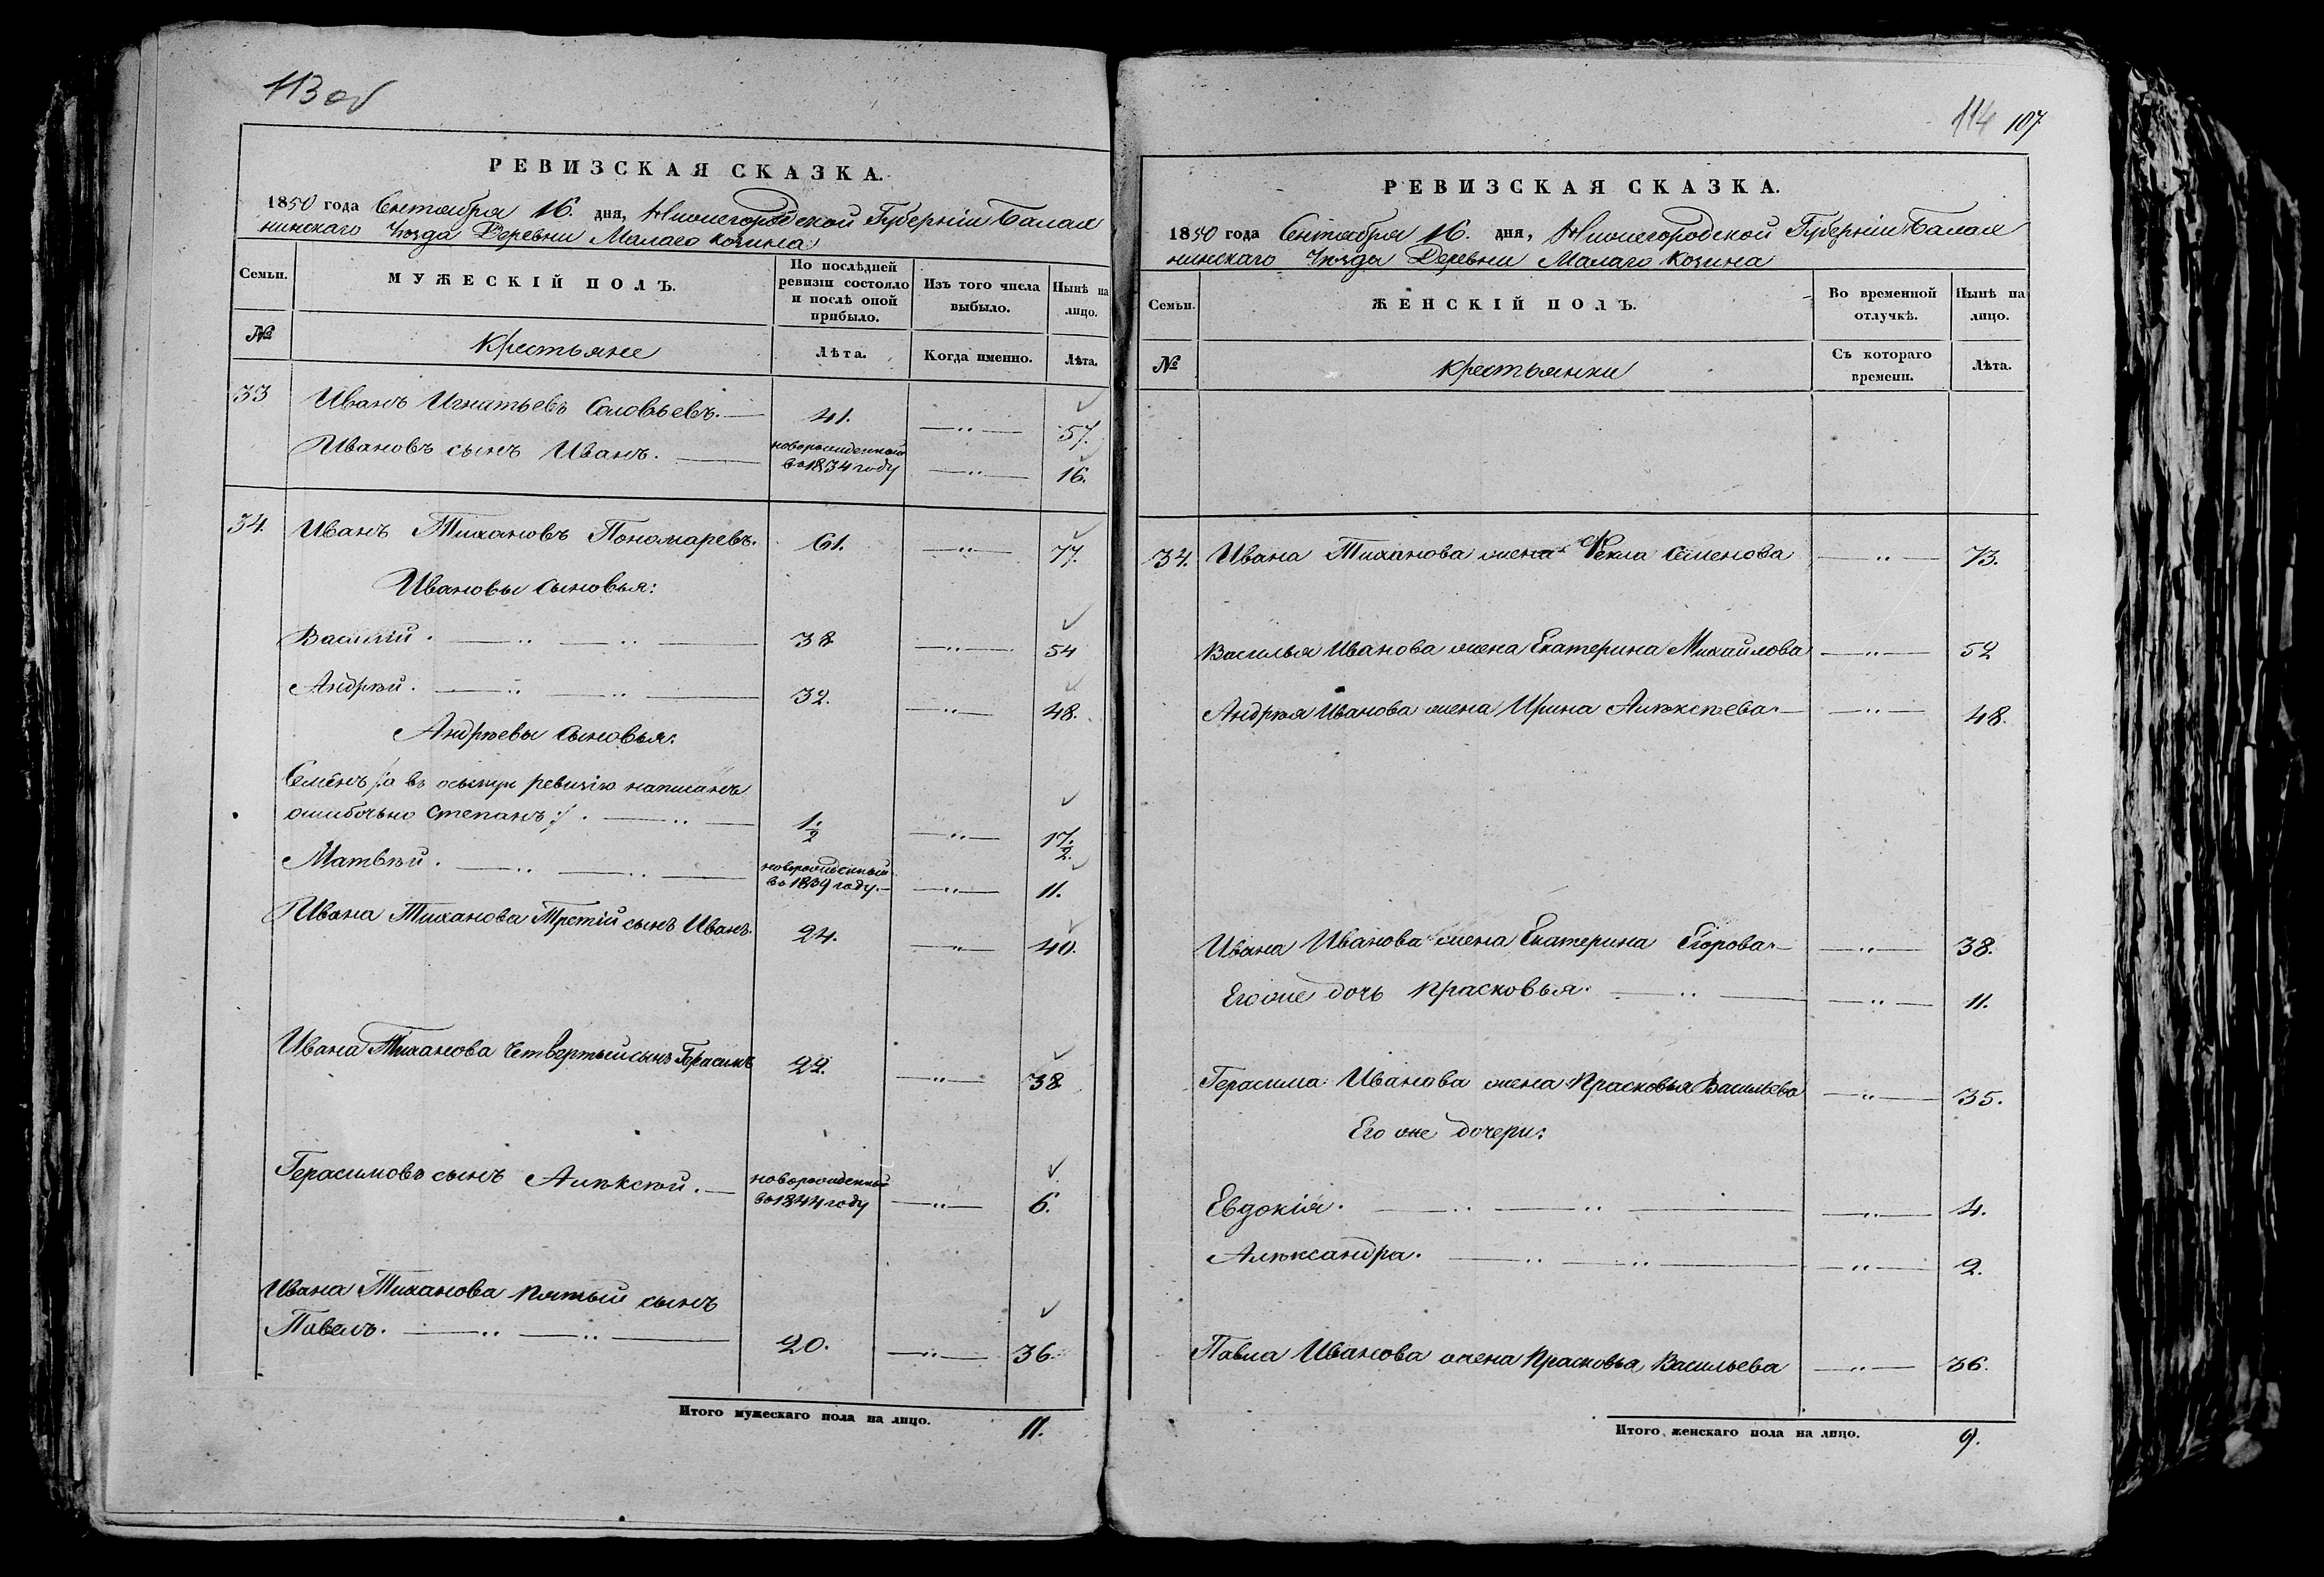 113 об
РЕВИЗСКАЯ СКАЗКА.
1850 года Сентября 16. дня, Нижегородской Губерніи Балах
нинскаго Уѣзда Деревни Малаго Козина
Семьи.
МУЖЕСКІЙ ПОЛЪ.
По послѣдней ревизіи состояло и послѣ оной прибыло.
Изъ того числа выбыло.
Нынѣ на лицо.
№
Крестьяне
Лѣта.
Когда именно.
Лѣта.
33 Иванъ Игнатьевъ Соловьевъ. 41. 57.
Ивановъ сынъ Иванъ. новорожденный въ 1834 году 16.
34. Иванъ Тихановъ Пономаревъ. 61. 77.
Ивановы сыновья:
Василій. 38 54
Андрѣй. 32. 48.
Андрѣевы сыновья:
Семёнъ /:а въ осьмую ревизію написанъ
ошибочьно Степанъ:/. 1.½ 17.½.
Матвѣй. новорожденный въ 1839 году. 11.
Ивана Тиханова Третій сынъ Иванъ. 24. 40.
Ивана Тиханова четвертый сынъ Герасимъ 22. 38
Герасимовъ сынъ Алѣксѣй. новорожденный въ 1844 году 6.
Ивана Тиханова пятый сынъ
Павелъ. 20. 36.
Итого мужескаго пола на лицо. 11.
114 107
РЕВИЗСКАЯ СКАЗКА.
1850 года Сентября 16. дня, Нижегородской Губерніи Балах
нинскаго Уѣзда Деревни Малаго Козина
Семьи.
ЖЕНСКІЙ ПОЛЪ.
Во временной отлучкѣ.
Нынѣ на лицо.
№
Крестьянки
Съ котораго времени.
Лѣта.
34. Ивана Тиханова жена Фекла Семенова 73.
Василья Иванова жена Екатерина Михайлова 52
Андрѣя Иванова жена Ирина Алѣксѣева 48.
Ивана Иванова жена Екатерина Егорова 38.
Его же дочь Прасковья. 11.
Герасима Иванова жена Прасковья Васильева 35.
Его же дочери:
Евдокія. 4.
Алѣксандра. 2.
Павла Иванова жена Прасковья Васильева 36.
Итого женскаго пола на лицо. 9.